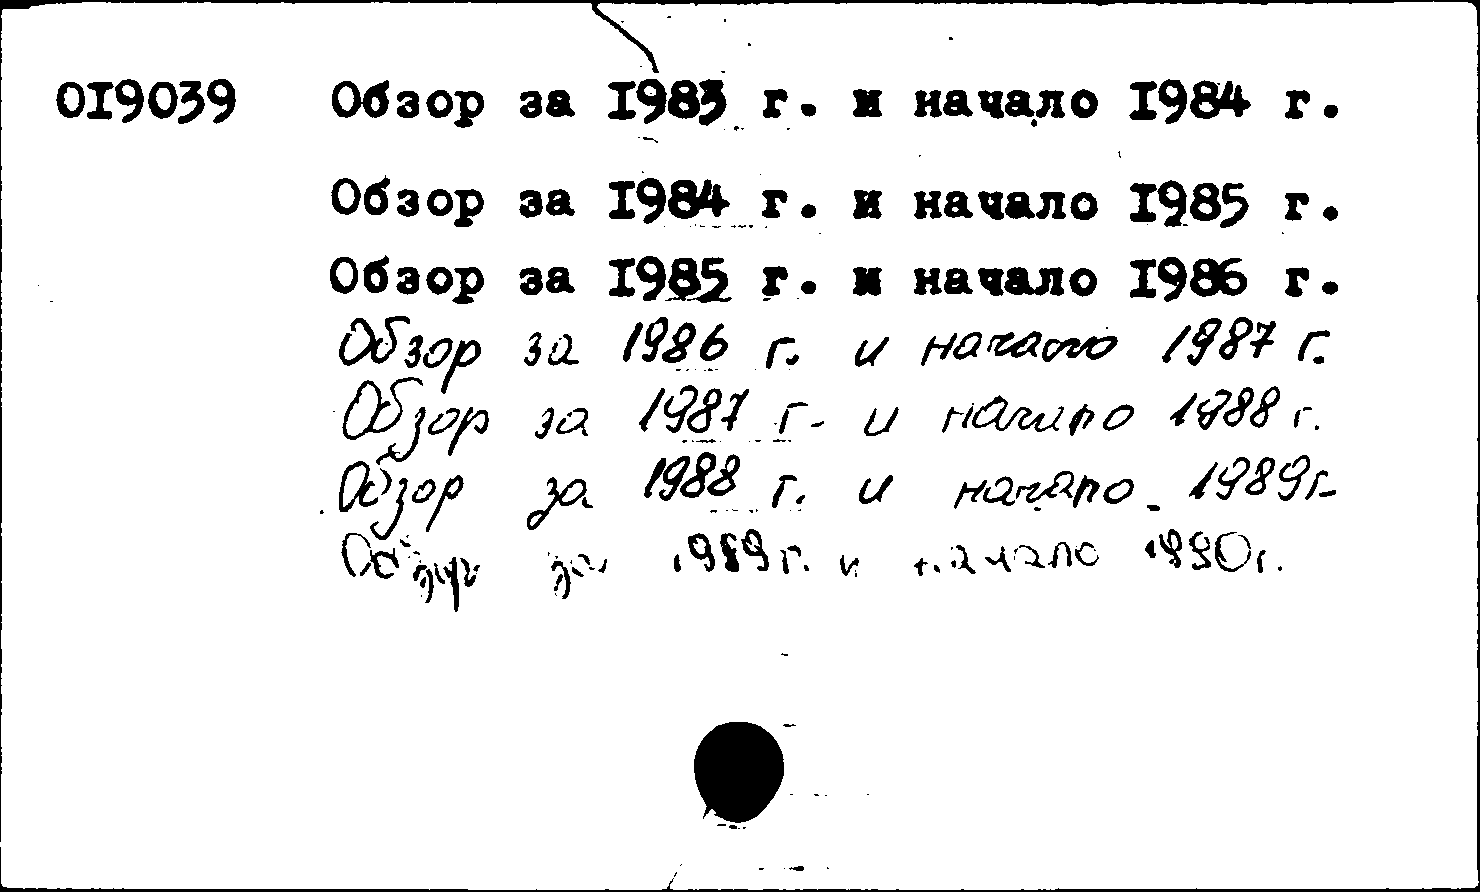 019039 Обзор за 1983 г. и начало 1984 г.
Обзор за 1984 г. и начало 1985 г.
Обзор за 1985 г. и начало 1986 г.
Обзор за 1986 г. и начало 1987 г.
Обзор за 1987 г. и начало 1988 г.
Обзор за 1988 г. и начало 1989 г.
Обзор за 1989 г. и начало 1990 г.